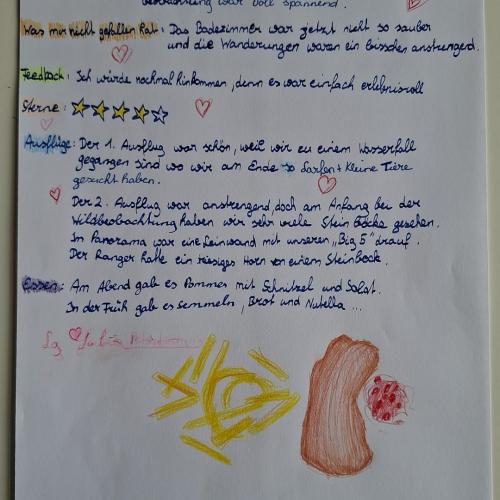 beobachtung war voll spannend.
Was mir nicht gefallen hat: Das Badezimmer war jetzt nicht so sauber
und die Wanderungen waren ein bisschen anstrengend.
Feedback: Ich würde nochmal hinkommen, denn es war einfach erlebnisvoll
Sterne:
Ausflüge: Der 1. Ausflug war schön, weil wir zu einem Wasserfall
gegangen sind wo wir am Ende so Larfen + kleine Tiere
gesucht haben.
Der 2. Ausflug war anstrengend, doch am Anfang bei der
Wildbeobachtung haben wir sehr viele Steinböcke gesehen.
Im Panorama war eine Leinwand mit unseren „Big 5" drauf.
Der Ranger hatte ein riesiges Horn von einem Steinbock.
Essen: Am Abend gab es Pommes mit Schnitzel und Salat.
In der Früh gab es Semmeln, Brot und Nutella ...
Lg